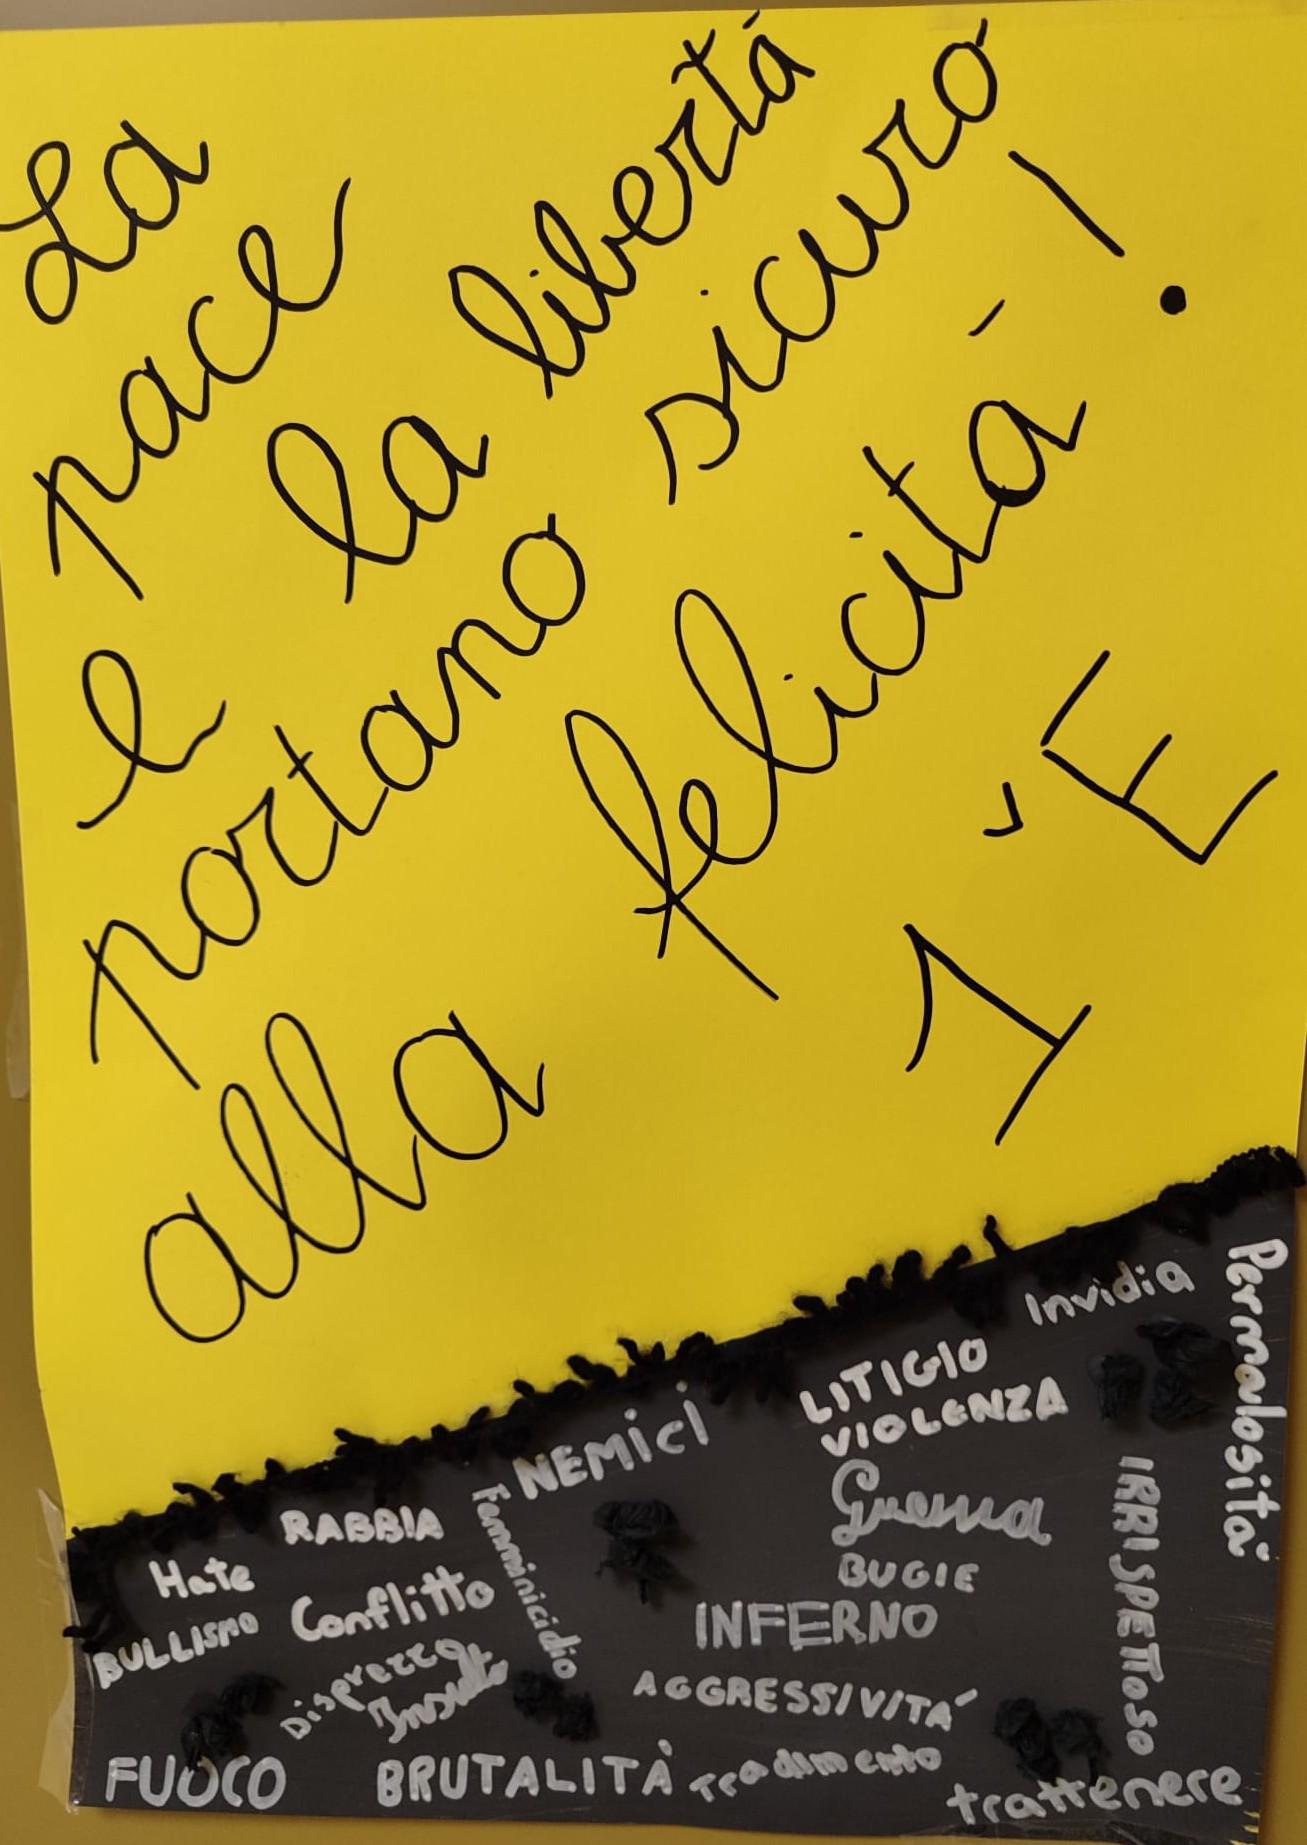 La
pace
e la libertá
portano sicuro
alla felicitá!
1ˇE
Invidia
Permalositá
LITIGIO
VIOLENZA
NEMICI
Guerra
IRRISPETTOSO
RABBIA
Femminicidio
Hate
Conflitto
BUGIE
BULLISMO
INFERNO
Disprezzo
Insulto
AGGRESSIVITÁ
FUOCO
BRUTALITÀ
Tradimento
trattenere